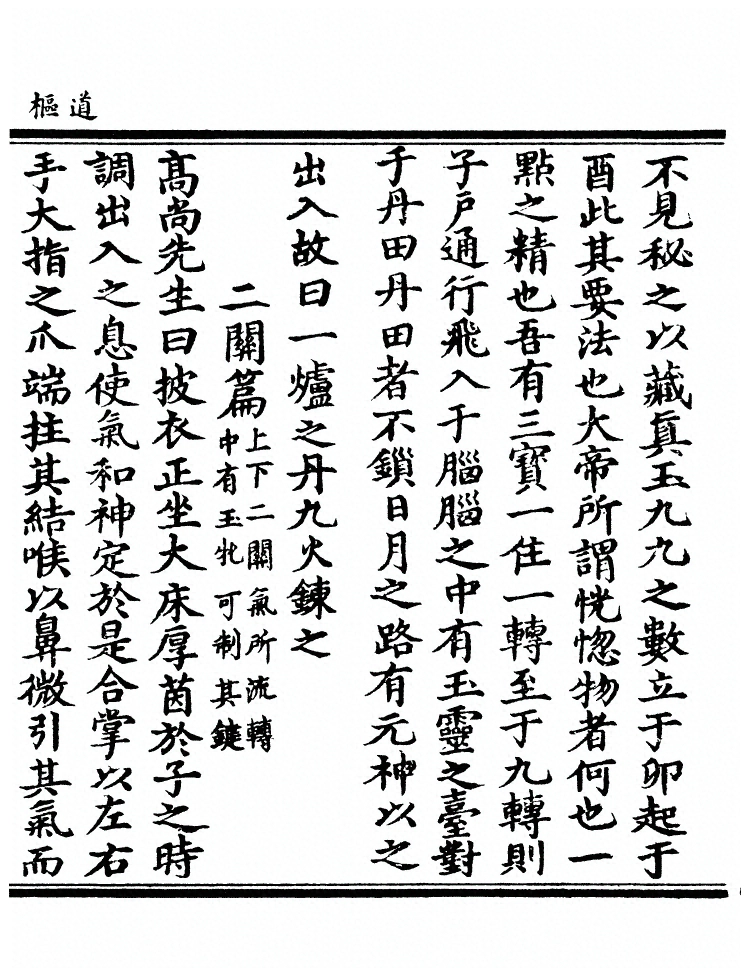 道樞
不見秘之以藏真玉九九之數立于卯起于
酉此其要法也大帝所謂恍惚物者何也一
點之精也吾有三寳一住一轉至于九轉則
子戶通行飛入于腦腦之中有玉靈之臺對
于丹田丹田者不鎖日月之路有元神以之
出入故曰一爐之丹九火鍊之
二關篇上下二關氣所流轉
中有玉牝可制其鍵
髙尚先生曰披衣正坐大床厚茵於子之時
調出入之息使氣和神定於是合掌以左右
手大指之爪端拄其結喉以鼻微引其氣而